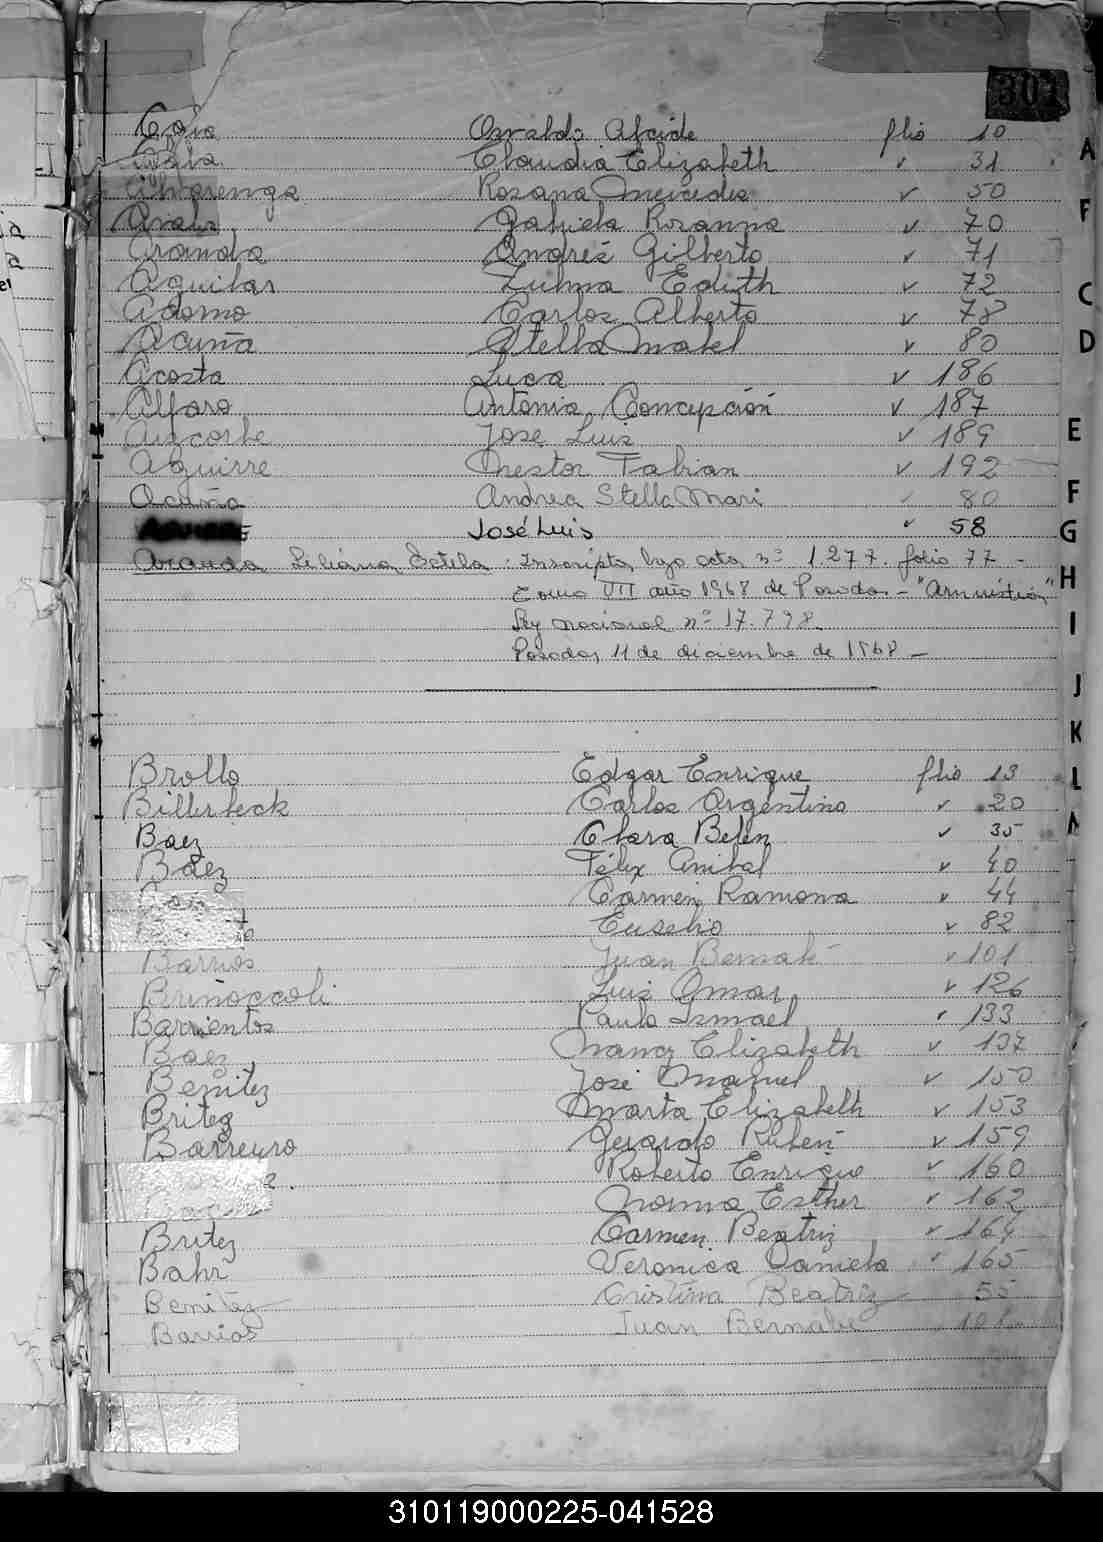 301
Osvaldo Alcide folio 10
Claudia Elizabeth " 31
Rosana Mercedes " 50
Gabriela Rosanna " 70
Aranda Andrés Gilberto " 71
Aguilar Zulma Edith " 72
Adorno Carlos Alberto " 78
Acuña Stella Mabel " 80
Acosta Luca " 186
Alfaro Antonia Concepción " 187
Ancorbe José Luis " 189
Aguirre Nestor Fabian " 192
Acuña Andrea Stella Mari " 80
José Luis " 58
Aranda Liliana Estela : Inscripta bajo acta nº 1277. folio 77 -
Tomo VII año 1968 de Posadas - "Amnistía"
Ley nacional nº 17.798
Posadas, 11 de diciembre de 1968 -
Brollo Edgar Enrique folio 13
Billerbeck Carlos Argentino " 20
Baez Clara Belén " 35
Baez Félix Anibal " 40
Carmen Ramona " 44
Eusebio " 82
Barrios Juan Bernabé " 101
Briñoccoli Luis Omar " 126
Barrientos Paulo Ismael " 133
Baez Nancy Elizabeth " 137
Benitez José Manuel " 150
Britez Marta Elizabeth " 153
Barreyro Gerardo Rubén " 159
Roberto Enrique " 160
Norma Esther " 162
Britez Carmen Beatriz " 164
Bahr Veronica Daniela " 165
Benitez Cristina Beatriz 55
Barrios Juan Bernabe 101
A
F
C
D
E
F
G
H
I
J
K
L
310119000225-041528